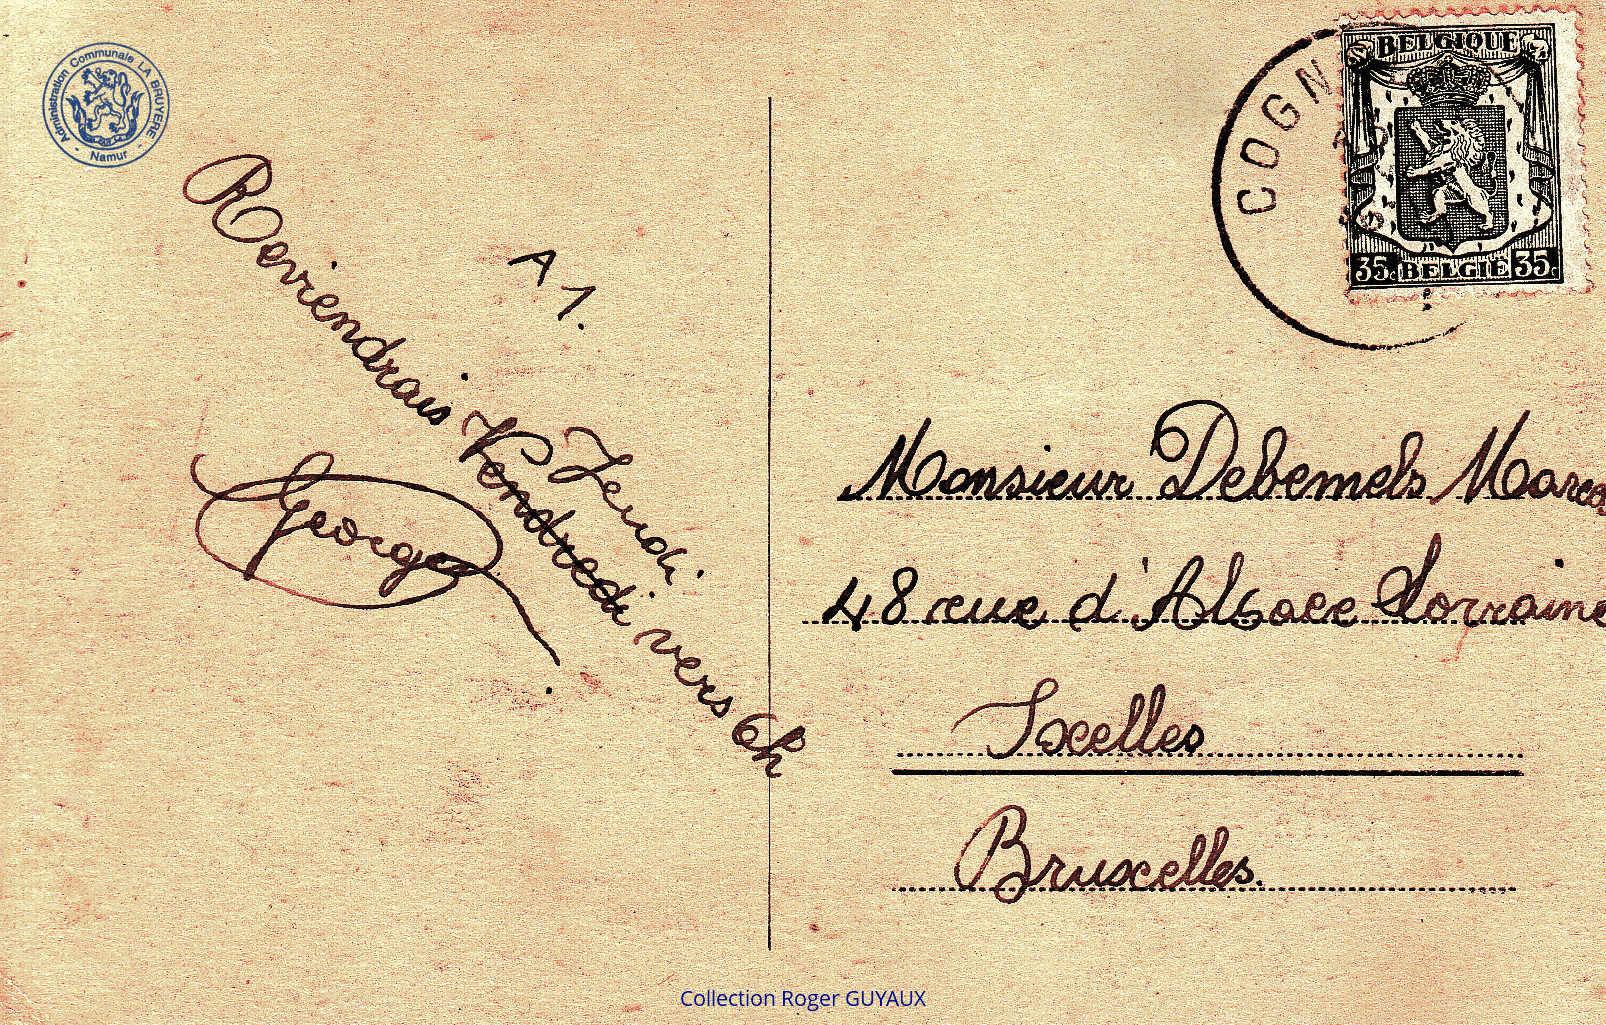 Administration Communale LA BRUYERE
- Namur -
A 1.
Reviendrais Vendredi vers 6h
Jeudi
Georges
COGN
BELGIQUE
35c BELGIË 35c
Monsieur Debemels
48 rue d'Alsace Lorraine
Ixelles
Bruxelles.
Collection Roger GUYAUX